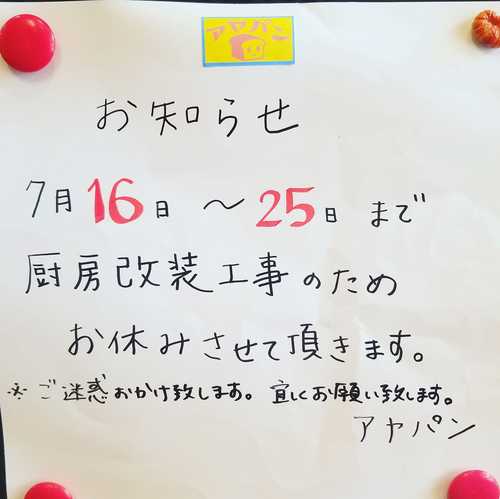 アヤパン
お知らせ
7月16日 〜 25日 まで
厨房改装工事のため
お休みさせて頂きます。
※ ご迷惑おかけ致します。宜しくお願い致します。
アヤパン